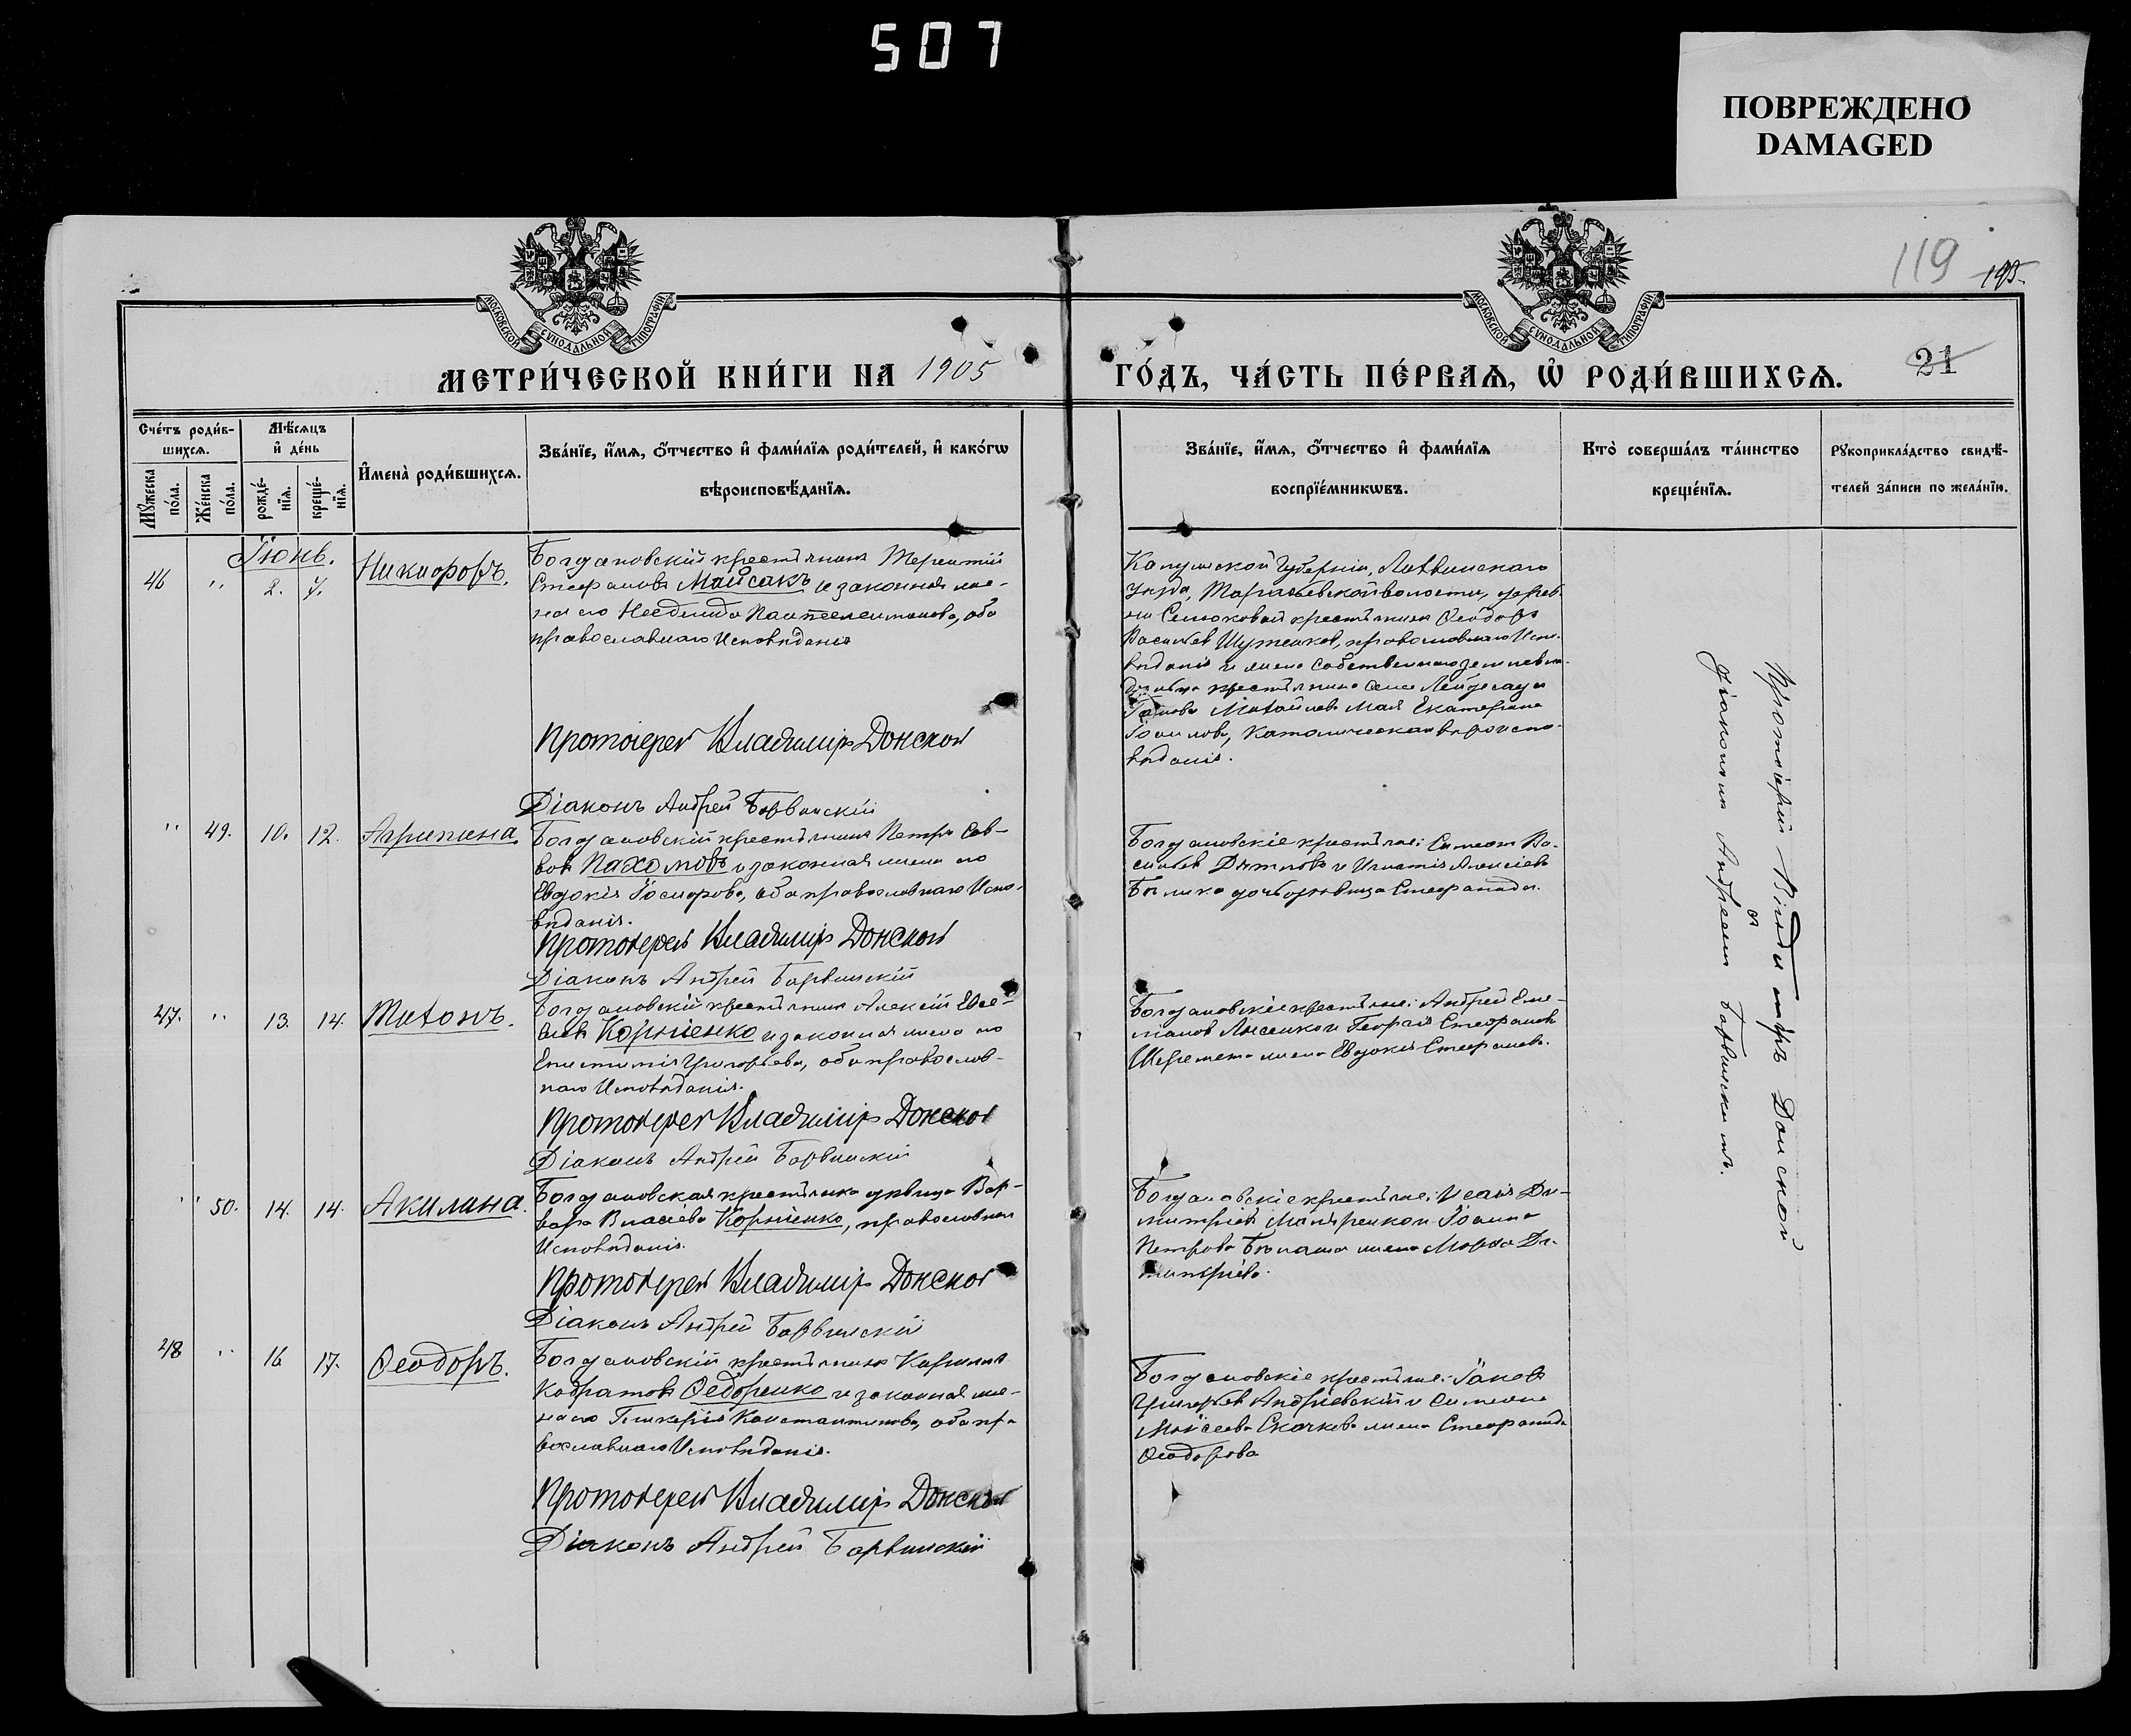 507
ПОВРЕЖДЕНО
DAMAGED
МОСКОВСКОЙ СѴНОДАЛЬНОЙ ТИПОГРАФІИ
МОСКОВСКОЙ СѴНОДАЛЬНОЙ ТИПОГРАФІИ
119
21
МЕТРИ́ЧЕСКОЙ КНИ́ГИ НА 1905
ГО́ДЪ, ЧА́СТЬ ПЕ́РВАѦ, Ѡ҆ РОДИ́ВШИХСѦ.
Сче́тъ роди́в-
шихсѧ.
Мѣ́сѧцъ
и҆ де́нь
Мꙋ́жеска
по́ла.
Же́нска
по́ла.
рожде́-
нїѧ.
креще́-
нїѧ.
И҆мена̀ роди́вшихсѧ.
Зва́нїе, и҆́мѧ, ѻ҆́тчество и҆ фами́лїѧ роди́телей, и҆ како́гѡ
вѣроисповѣ́данїѧ.
Зва́нїе, и҆́мѧ, ѻ҆́тчество и҆ фами́лїѧ
воспрїе́мникѡвъ.
Кто̀ соверша́лъ та́инство
креще́нїѧ.
Рꙋкоприкла́дство свидѣ́-
телей за́писи по жела́нїю.
Іюнь.
46 " 2. 7. Никифоръ.
Богдановскій крестьянинъ Терентій
Стефановъ Майсакъ и законная же-
на его Неонила Пантелеимонова, оба
православнаго Исповѣданія
Протоіерей Владиміръ Донской
Діаконъ Андрей Барвинскій
Калужской Губерніи, Лихвинскаго
уѣзда, волости, дерев-
ни крестьянинъ Ѳеодоръ
Васильев православнаго Испо-
вѣданія и жена собственника землевла-
дѣльца крестьянина
Михайлова Екатерина
католическаго вѣроиспо-
вѣданія.
" 49. 10. 12. Агрипина
Богдановскій крестьянинъ Петръ Сав-
вовъ Пахомовъ и законная жена его
Евдокія Іосифова, оба православнаго Испо-
вѣданія.
Протоіерей Владиміръ Донской
Діаконъ Андрей Барвинскій
Богдановскіе крестьяне: Симеонъ Ва-
сильев Дятловъ и Игнатія Алексіева
Бѣлика дочь дѣвица Стефанида.
47. " 13. 14. Тихонъ.
Богдановскій крестьянинъ Алексій Евсе-
евъ Корніенко и законная жена его
Епистимія Григорьева, оба православ-
наго Исповѣданія.
Протоіерей Владиміръ Донской
Діаконъ Андрей Барвинскій
Богдановскіе крестьяне: Андрей Еме-
ліанов Лысенко и Георгія Стефанова
Шеремета жена Евдокія Стефанова.
" 50. 14. 14. Акилина.
Богдановская крестьянка дѣвица Вар-
вара Власіева Корніенко, православнаго
Исповѣданія.
Протоіерей Владиміръ Донской
Діаконъ Андрей Барвинскій
Богдановскіе крестьяне: Исаія Ди-
митріев и Іоанна
Петрова жена Марѳа Ди-
митріева.
48 " 16 17. Ѳеодоръ.
Богдановскій крестьянинъ Кириллъ
Кодратовъ Ѳедоренко и законная же-
на его Гликерія Константинова, оба пра
вославнаго Исповѣданія.
Протоіерей Владиміръ Донской
Діаконъ Андрей Барвинскій
Богдановскіе крестьяне: Іаковъ
Григорьев Андріевскій и Симеона
Моисеева Скачкова жена Стефанида
Ѳеодорова
Протоіерей Владиміръ Донской
съ
діакономъ Андреемъ Барвинскимъ.